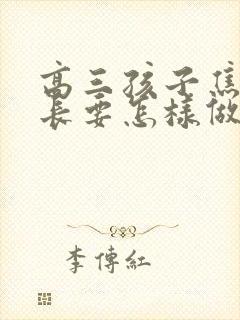 高三孩子焦
長要怎樣做
李傳紅